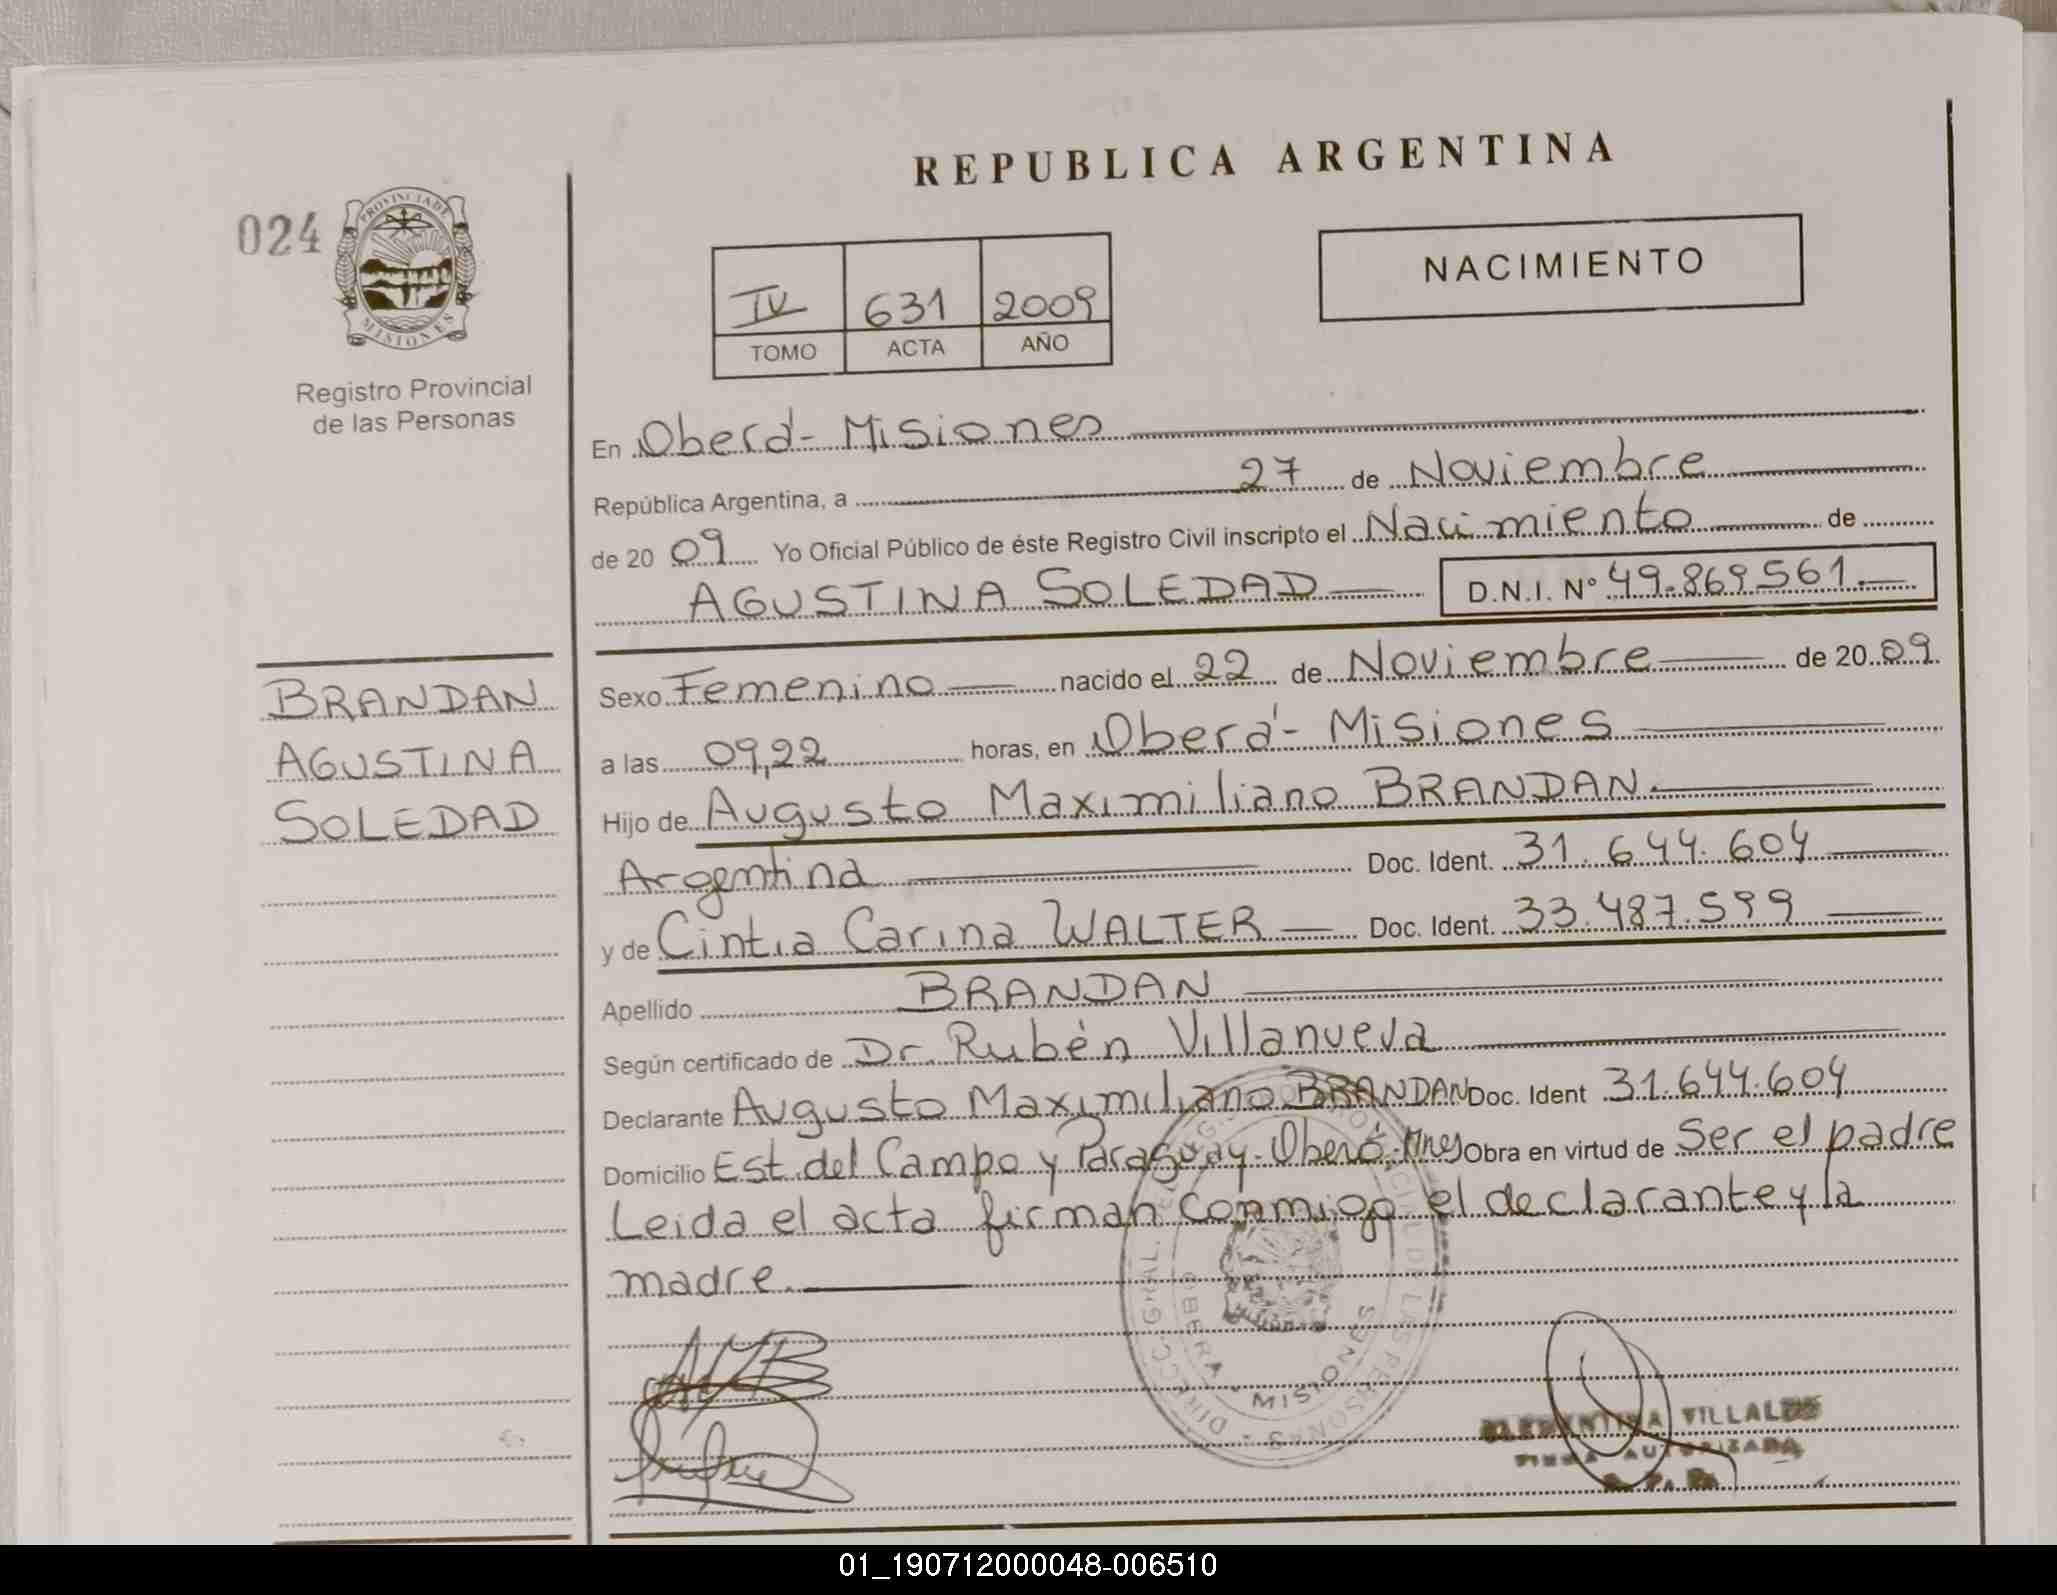 REPUBLICA ARGENTINA
024
PROVINCIA DE
MISIONES
Registro Provincial
de las Personas
IV 631 2009
TOMO ACTA AÑO
NACIMIENTO
En Oberá - Misiones
República Argentina, a 27 de Noviembre
de 20 09 Yo Oficial Público de éste Registro Civil inscripto el Nacimiento de
AGUSTINA SOLEDAD D.N.I. Nº 49.869.561.
BRANDAN
AGUSTINA
SOLEDAD
Sexo Femenino nacido el 22 de Noviembre de 20 09
a las 09,22 horas, en Oberá - Misiones
Hijo de Augusto Maximiliano BRANDAN.
Argentina Doc. Ident. 31.644.604
y de Cintia Carina WALTER Doc. Ident. 33.487.599
Apellido BRANDAN
Según certificado de Dr. Rubén Villanueva
Declarante Augusto Maximiliano BRANDAN Doc. Ident 31.644.604
Domicilio Est. del Campo y Paraguay - Oberá, Mnes Obra en virtud de Ser el padre
Leida el acta firman conmigo el declarante y la
madre.
OBERA - MISIONES
VILLALBA
FIRMA AUTORIZADA
01_190712000048-006510